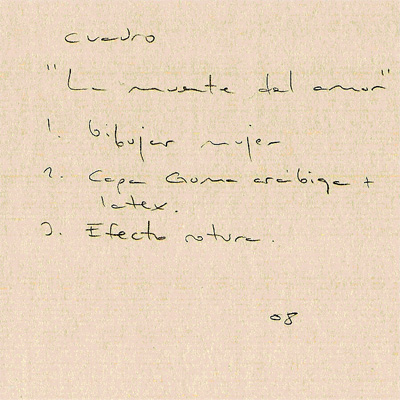 cuadro
"La muerte del amor"
1. Dibujar mujer
2. Capa Goma arábiga +
latex.
3. Efecto rotura.
08